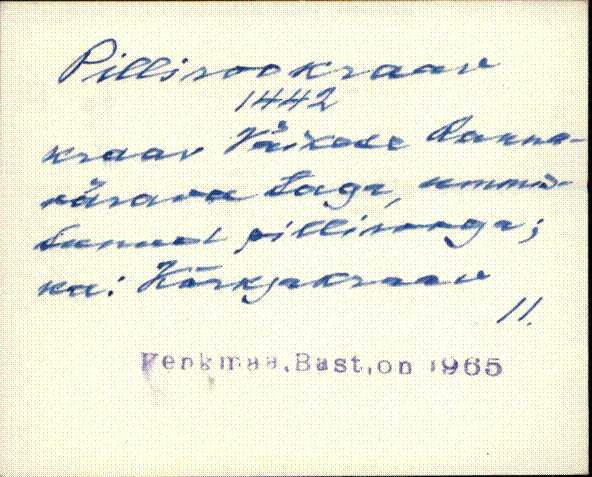 Pillirookraav
1442
kraav Väikese Ranna-
värava taga, ummis-
tunud pillirooga;
ka: Kõrkjakraav
11.
Kenkmaa, Bastion 1965